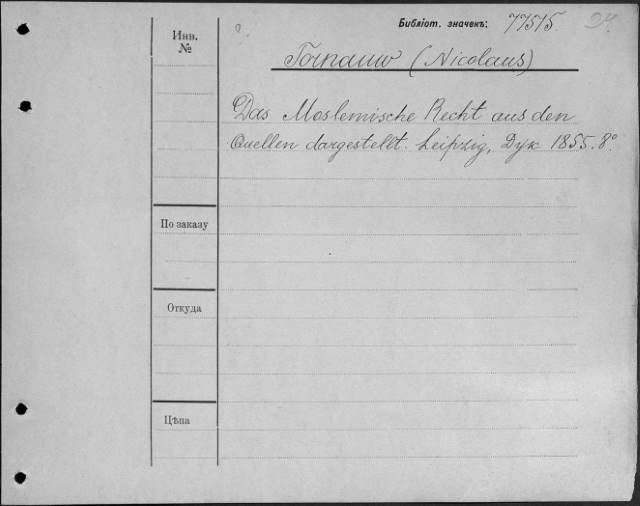 Библiот. значекъ: 77515. 24.
Инв.
№
Tornauw (Nicolaus)
Das Moslemische Recht aus den
Quellen dargestellt. Leipzig, Dyk 1855. 8º
По заказу
Откуда
Цѣна